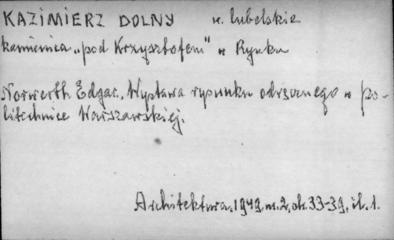 KAZIMIERZ DOLNY w. lubelskie
kamienica "pod Krzysztofem" w Rynku
Norwerth Edgar. Wystawa rysunku odręcznego w Po-
litechnice Warszawskiej.
Architektura. 1949, nr. 2, str. 33-39, il. 1.